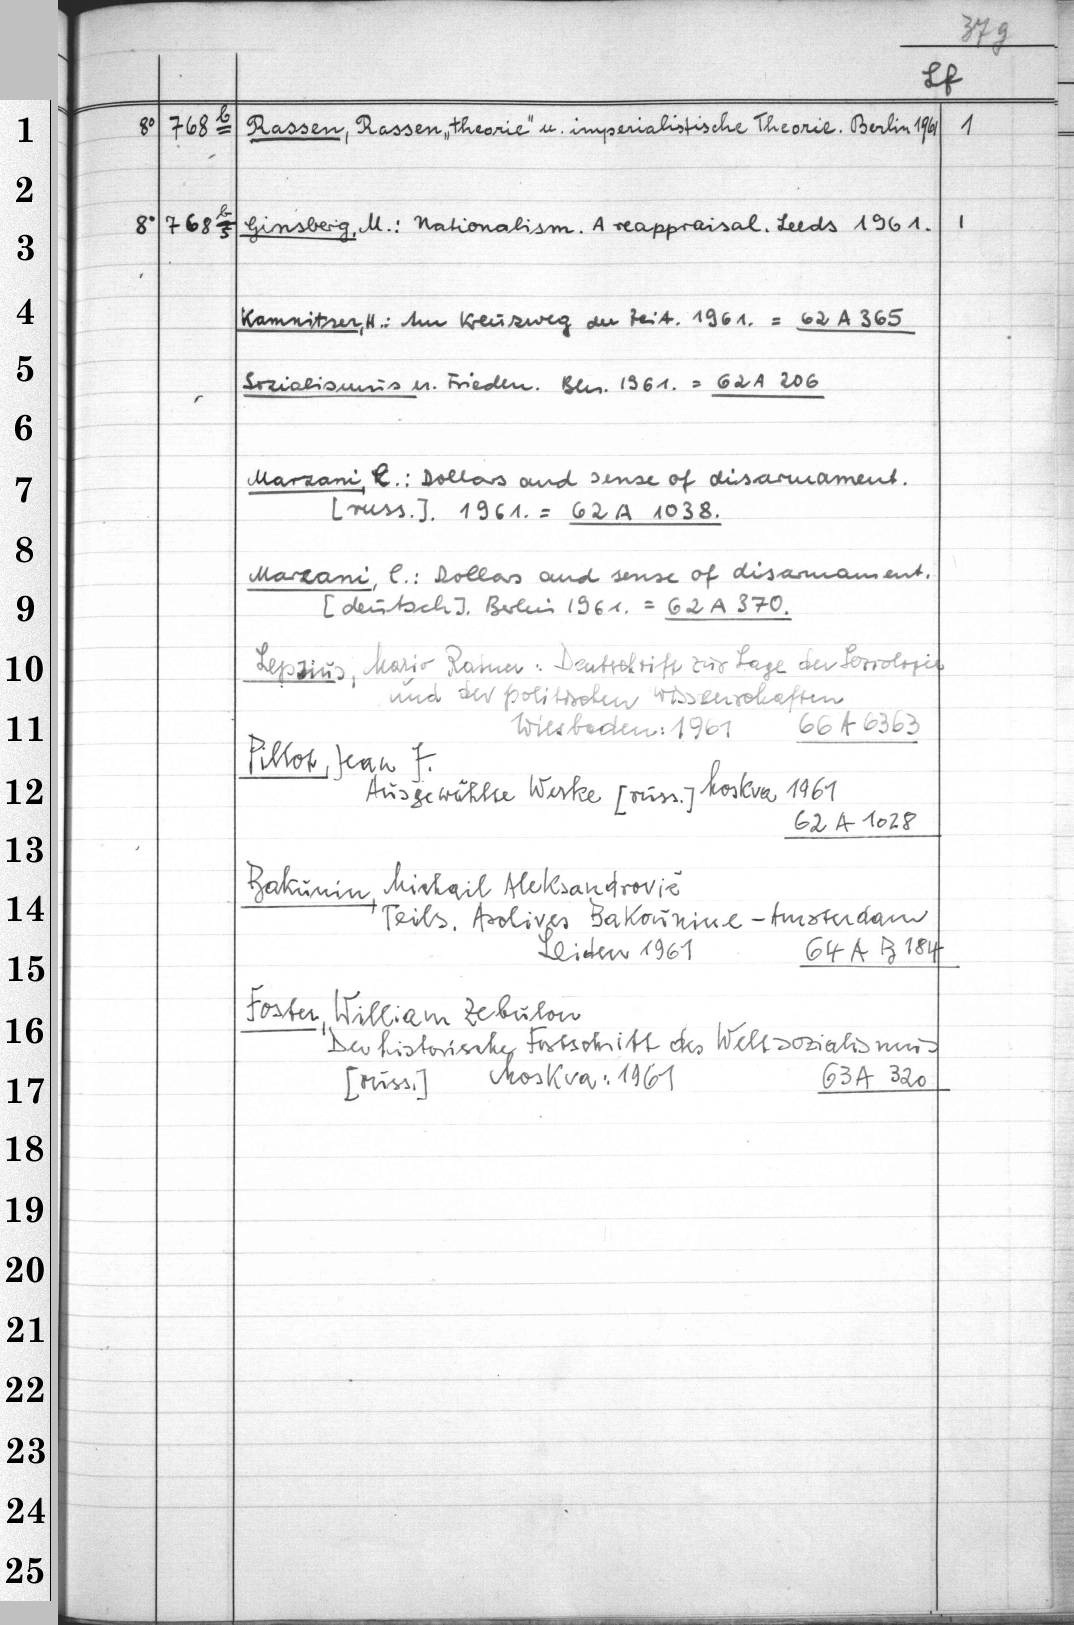 37g
Lf
1 8° 768 b Rassen, Rassen„theorie" u. imperialistische Theorie. Berlin 1961 1
2
3 8° 768 b/5 Ginsberg, M.: Nationalism. A reappraisal. Leeds 1961. 1
4 Kamnitzer, H.: Am Kreuzweg der Zeit. 1961. = 62 A 365
5 Sozialismus u. Frieden. Bln. 1961. = 62 A 206
6
7 Marzani, C.: Dollars and sense of disarmament.
[russ.]. 1961. = 62 A 1038.
8
Marzani, C.: Dollars and sense of disarmament.
9 [deutsch]. Berlin 1961. = 62 A 370.
10 Lepsius, Mario Rainer: Denkschrift zur Lage der Soziologie
und der politischen Wissenschaften
11 Wiesbaden: 1961 66 A 6363
Pillot, Jean J.
12 Ausgewählte Werke [russ.] Moskva 1961
62 A 1028
13
Bakunin, Michail Aleksandrovič
14 Teils. Archives Bakounine - Amsterdam
15 Leiden 1961 64 A B 184
Foster, William Zebulon
16 Der historische Fortschritt des Weltsozialismus
17 [russ.] Moskva: 1961 63 A 320
18
19
20
21
22
23
24
25